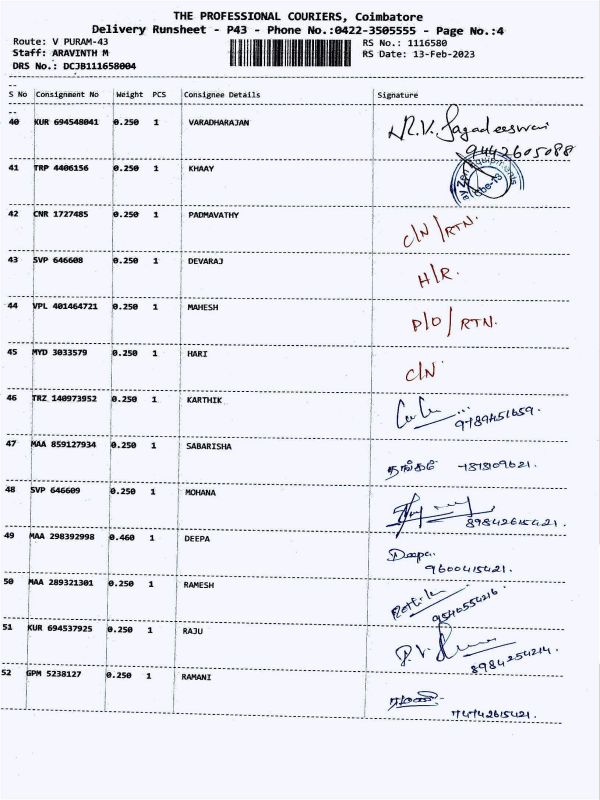 THE PROFESSIONAL COURIERS, Coimbatore
Delivery Runsheet - P43 - Phone No.:0422-3505555 - Page No.:4
Route: V PURAM-43 RS No.: 1116580
Staff: ARAVINTH M RS Date: 13-Feb-2023
DRS No.: DCJB111658004
S No Consignment No Weight PCS Consignee Details Signature
40 KUR 694548041 0.250 1 VARADHARAJAN R.V. Jagadeeswari
9442605088
41 TRP 4406156 0.250 1 KHAAY
42 CNR 1727485 0.250 1 PADMAVATHY C/N / RTN.
43 SVP 646608 0.250 1 DEVARAJ H/R.
44 VPL 401464721 0.250 1 MAHESH P/O / RTN.
45 MYD 3033579 0.250 1 HARI C/N
46 TRZ 140973952 0.250 1 KARTHIK 9789451659.
47 MAA 859127934 0.250 1 SABARISHA தங்கம்
48 SVP 646609 0.250 1 MOHANA 89842615421.
49 MAA 298392998 0.460 1 DEEPA Deepa.
9600415421.
50 MAA 289321301 0.250 1 RAMESH 9540554216.
51 KUR 694537925 0.250 1 RAJU 8984254214.
52 GPM 5238127 0.250 1 RAMANI ரமணி
74742615421.